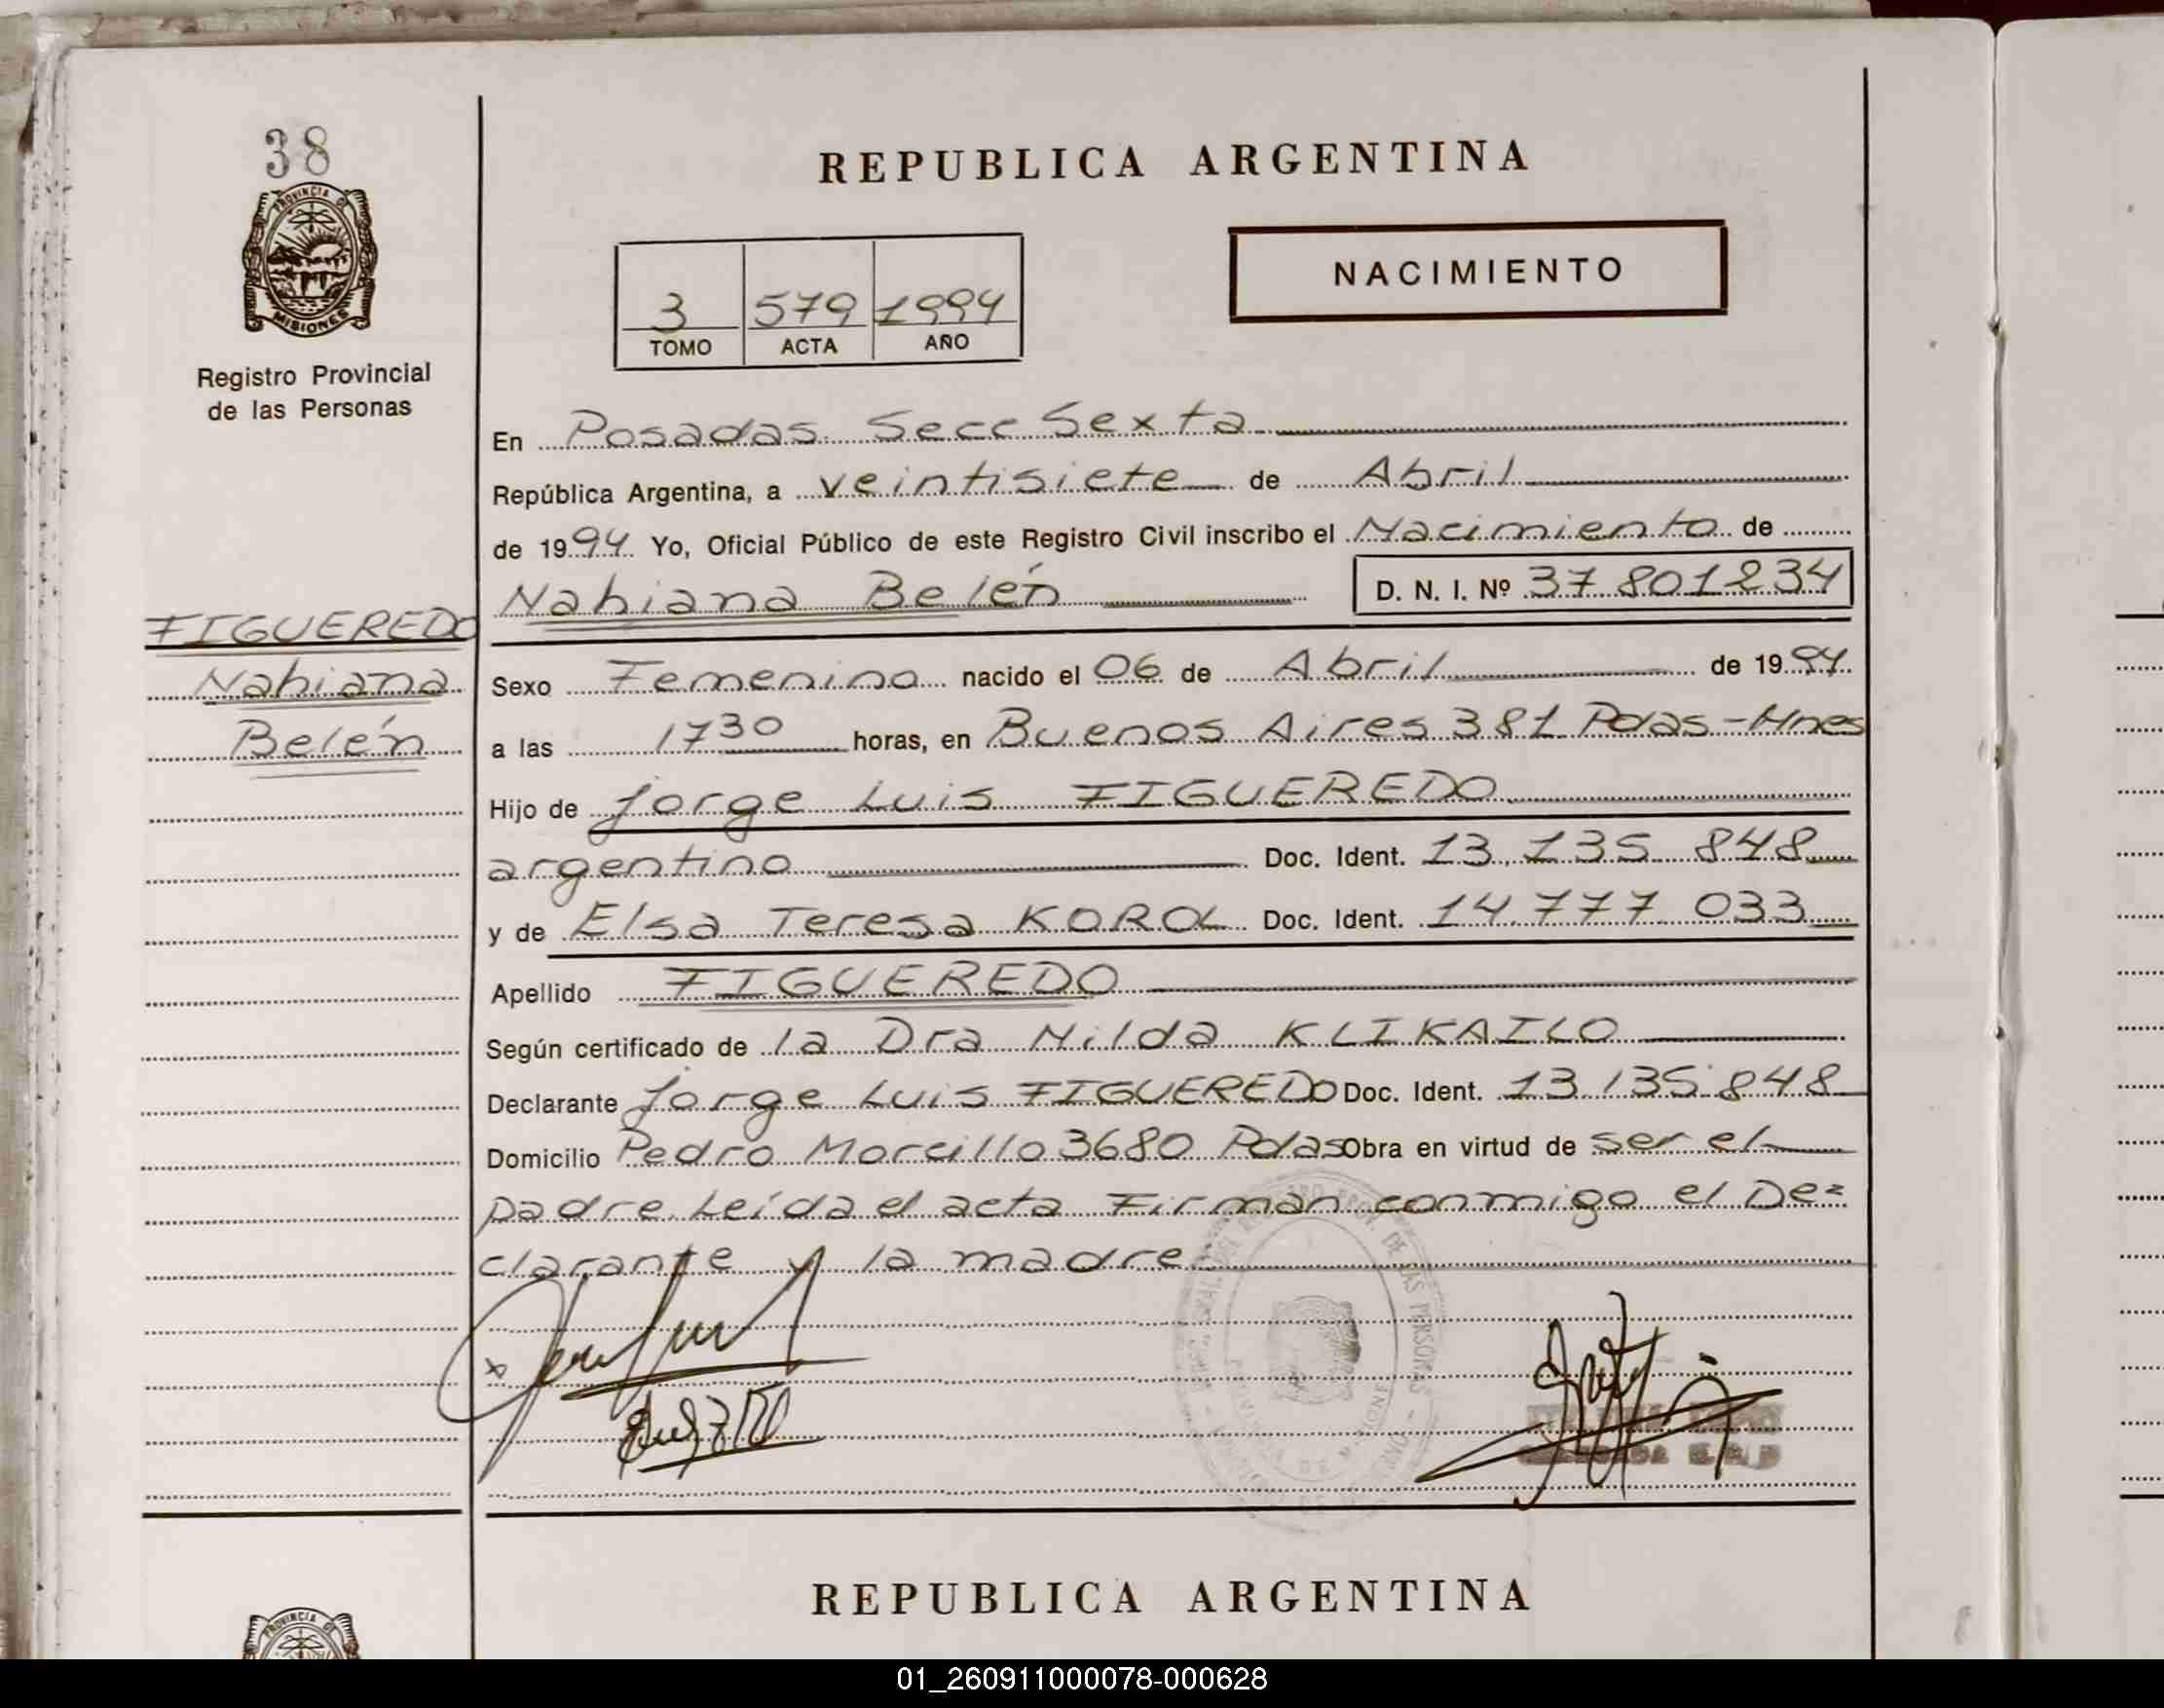 38
PROVINCIA DE
MISIONES
Registro Provincial
de las Personas
FIGUEREDO
Nahiana
Belén
REPUBLICA ARGENTINA
NACIMIENTO
3 579 1994
TOMO ACTA AÑO
En Posadas Secc Sexta
República Argentina, a veintisiete de Abril
de 1994 Yo, Oficial Público de este Registro Civil inscribo el Nacimiento de
Nahiana Belén D. N. I. Nº 37 801234
Sexo Femenino nacido el 06 de Abril de 1994
a las 1730 horas, en Buenos Aires 381 Pdas-Mnes
Hijo de Jorge Luis FIGUEREDO
argentino Doc. Ident. 13.135 848
y de Elsa Teresa KOROL Doc. Ident. 14.777 033
Apellido FIGUEREDO
Según certificado de la Dra Nilda KLIKAILO
Declarante Jorge Luis FIGUEREDO Doc. Ident. 13.135.848
Domicilio Pedro Morcillo 3680 Pdas Obra en virtud de ser el
padre. Leída el acta Firman conmigo el De=
clarante y la madre
REPUBLICA ARGENTINA
PROVINCIA DE
01_260911000078-000628